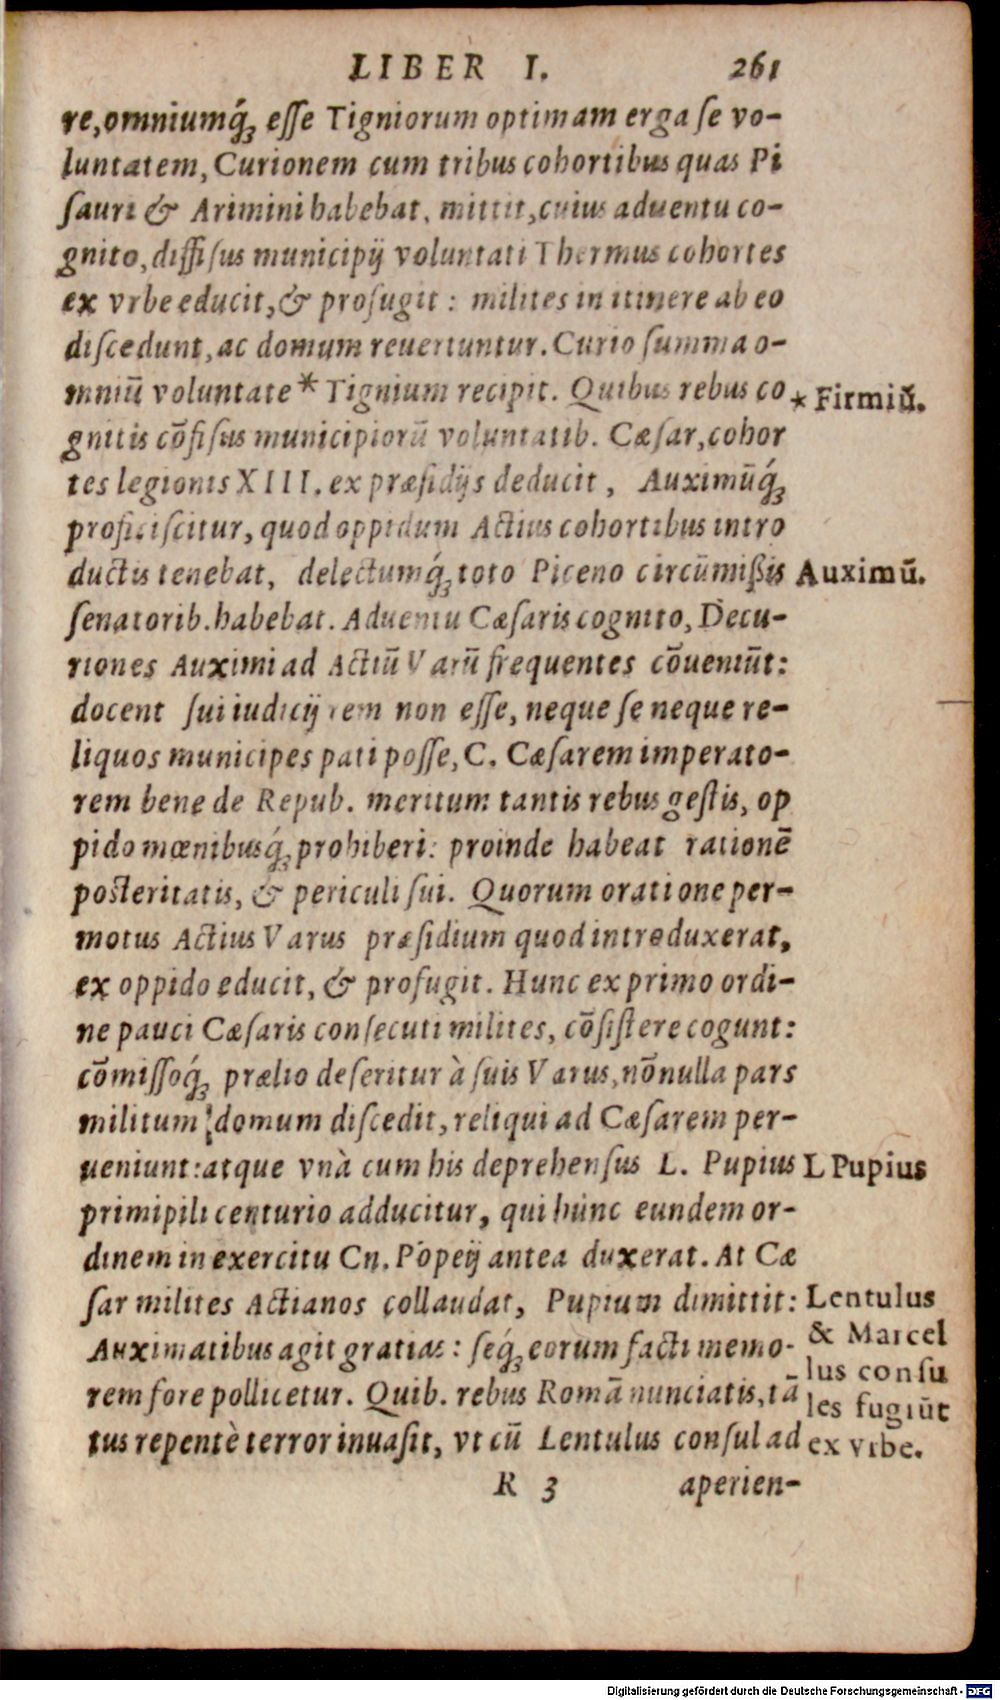 LIBER I. 261
re, omniumq́; esse Tigniorum optimam erga se vo-
luntatem, Curionem cum tribus cohortibus quas Pi
sauri & Arimini habebat, mittit, cuius aduentu co-
gnito, diffisus municipij voluntati Thermus cohortes
ex vrbe educit, & profugit: milites in itinere ab eo
discedunt, ac domum reuertuntur. Curio summa o-
mniū voluntate * Tignium recipit. Quibus rebus co
* Firmiū.
gnitis cōfisus municipiorū voluntatib. Cæsar, cohor
tes legionis XIII. ex præsidijs deducit, Auximūq́;
proficiscitur, quod oppidum Actius cohortibus intro
ductis tenebat, delectumq́; toto Piceno circūmißis
Auximū.
senatorib. habebat. Aduentu Cæsaris cognito, Decu-
riones Auximi ad Actiū Varū frequentes cōueniūt:
docent sui iudicij rem non esse, neque se neque re-
liquos municipes pati posse, C. Cæsarem imperato-
rem bene de Repub. meritum tantis rebus gestis, op
pido mœnibusq́; prohiberi: proinde habeat rationē
posteritatis, & periculi sui. Quorum oratione per-
motus Actius Varus præsidium quod introduxerat,
ex oppido educit, & profugit. Hunc ex primo ordi-
ne pauci Cæsaris consecuti milites, cōsistere cogunt:
cōmissoq́; prælio deseritur à suis Varus, nōnulla pars
militum domum discedit, reliqui ad Cæsarem per-
ueniunt: atque vnà cum his deprehensus L. Pupius
L Pupius
primipili centurio adducitur, qui hunc eundem or-
dinem in exercitu Cn. Pōpeij antea duxerat. At Cæ
sar milites Actianos collaudat, Pupium dimittit:
Auximatibus agit gratias: seq́; eorum facti memo-
rem fore pollicetur. Quib. rebus Romā nunciatis, tā
tus repentè terror inuasit, vt cū Lentulus consul ad
Lentulus
& Marcel
lus consu
les fugiūt
ex vrbe.
R 3 aperien-
Digitalisierung gefördert durch die Deutsche Forschungsgemeinschaft - DFG